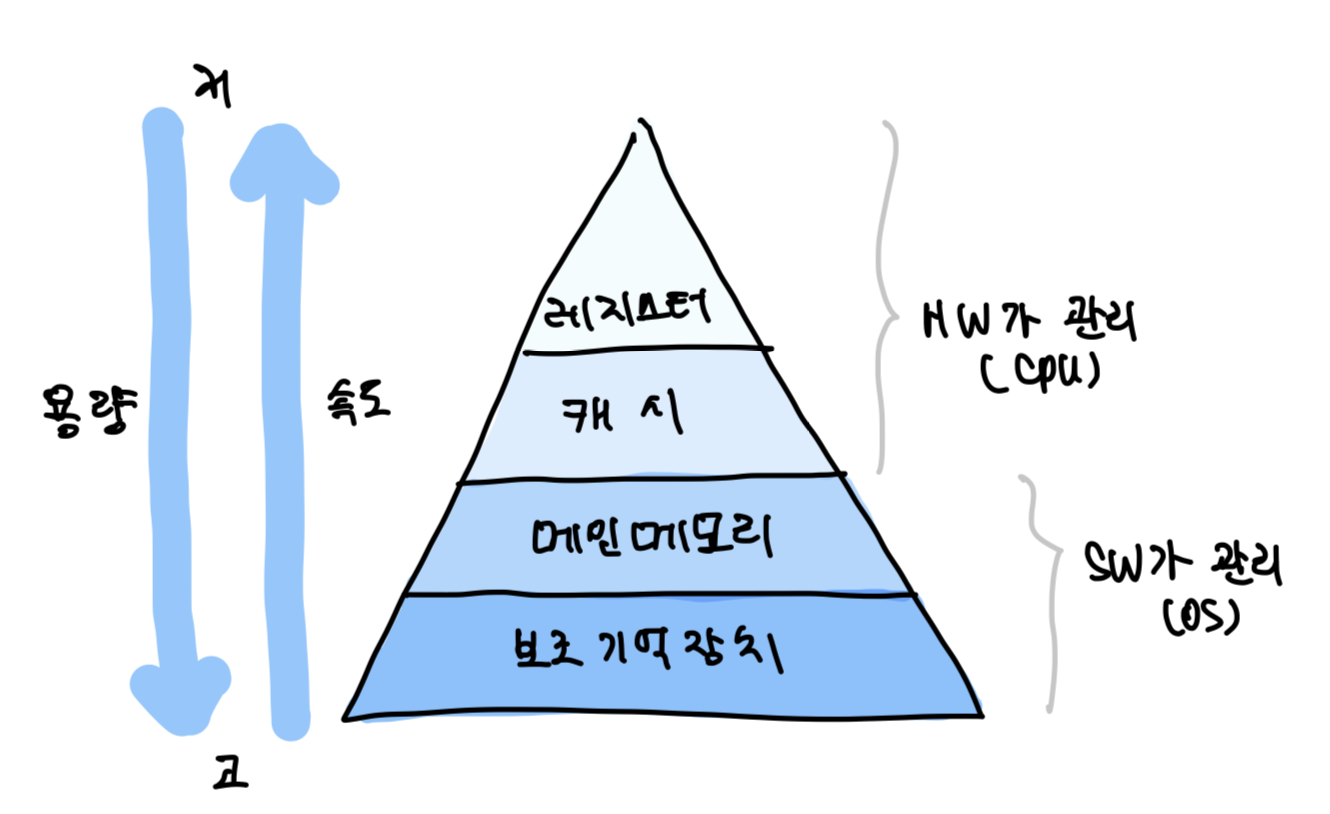 저
용량
속도
고
레지스터
캐시
메인메모리
보조기억장치
HW가 관리
(CPU)
SW가 관리
(OS)